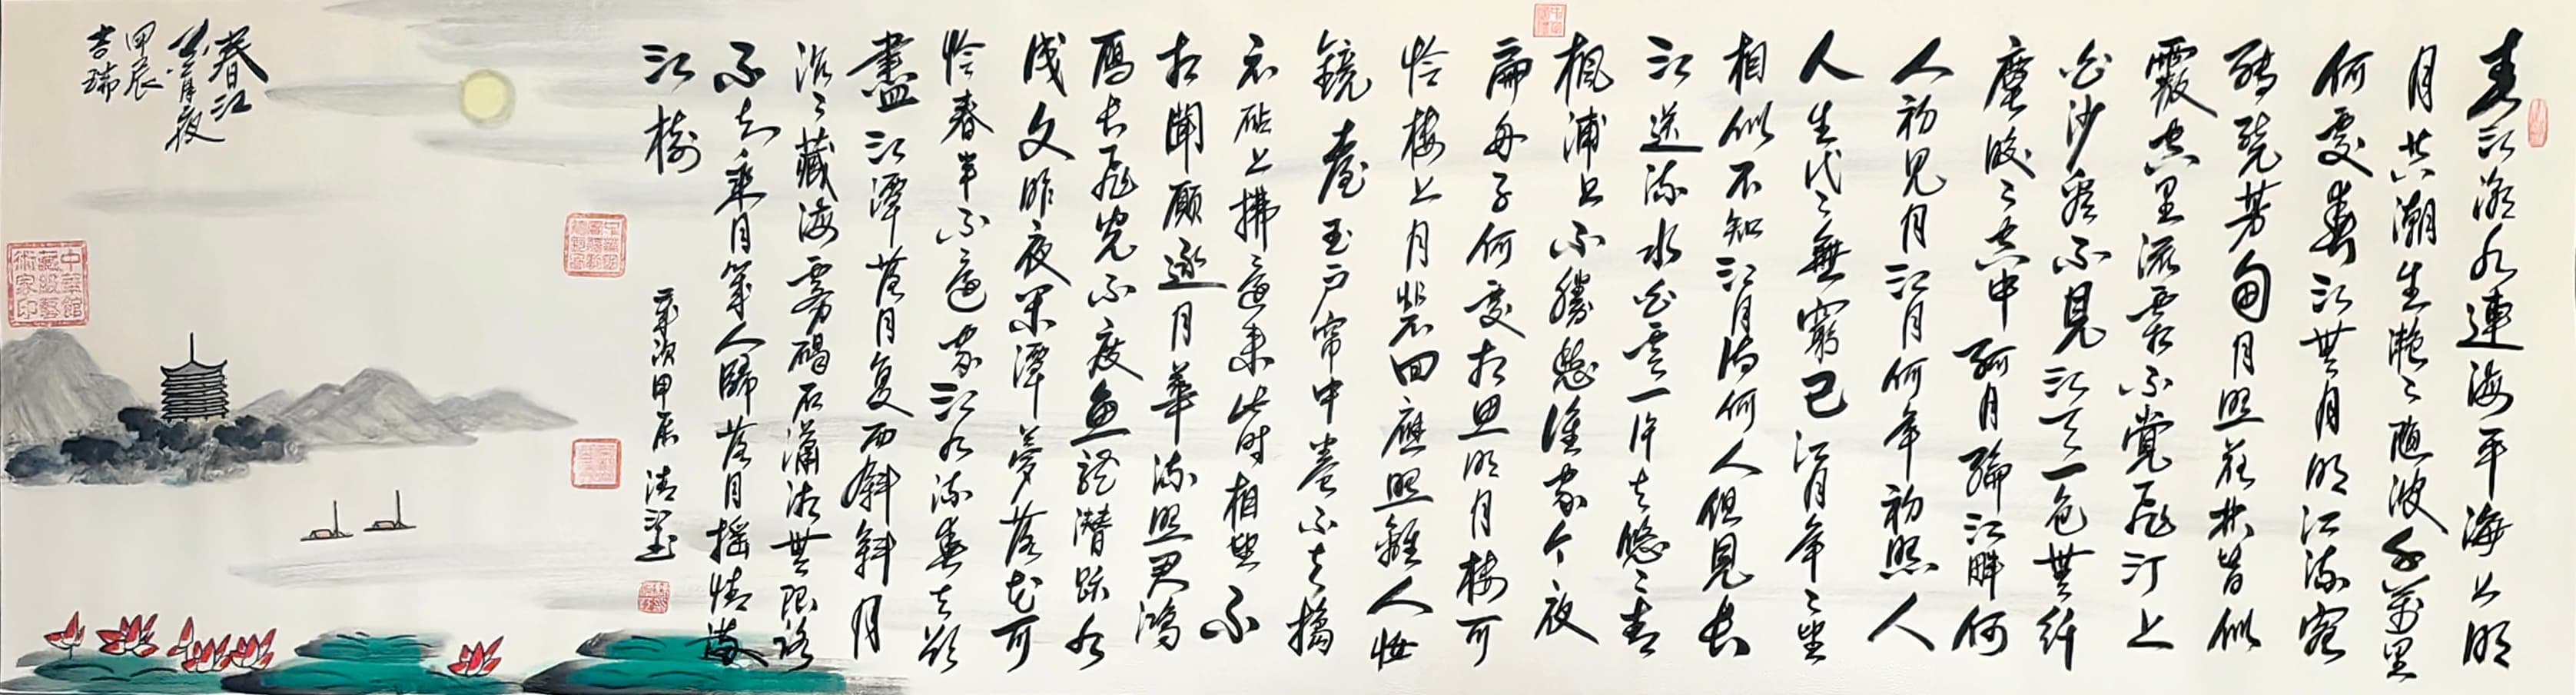 春江潮水連海平海上明
月共潮生灩〻隨波千萬里
何處春江無月明江流宛
轉繞芳甸月照花林皆似
霰空里流霜不覺飛汀上
白沙看不見江天一色無纤
塵皎〻空中孤月輪江畔何
人初見月江月何年初照人
人生代〻無窮已江月年〻望
相似不知江月待何人但見長
江送流水白雲一片去悠〻青
楓浦上不勝愁誰家今夜
扁舟子何處相思明月樓可
憐樓上月裴回應照離人妝
鏡臺玉戶帘中卷不去擣
衣砧上拂還來此時相望不
相聞願逐月華流照君鴻
雁長飛光不度魚龍潛躍水
成文昨夜閑潭夢落花可
憐春半不還家江水流春去欲
盡江潭落月复西斜斜月
沉〻藏海霧碣石瀟湘無限路
不知乘月幾人歸落月搖情滿
江樹
歲次甲辰清
春江
花月夜
甲辰
吉瑞
中華館
藏級藝
術家印